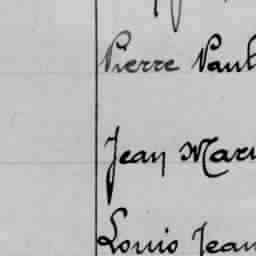 Pierre Paul
Jean Mari
Louis Jean